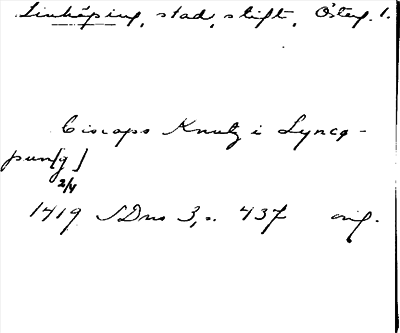 Linköping, stad, stift, Österg. 1.
Biscops Knutz i Lyncø-
pun[g]
2/4
1419 SDns 3, s. 437 orig.